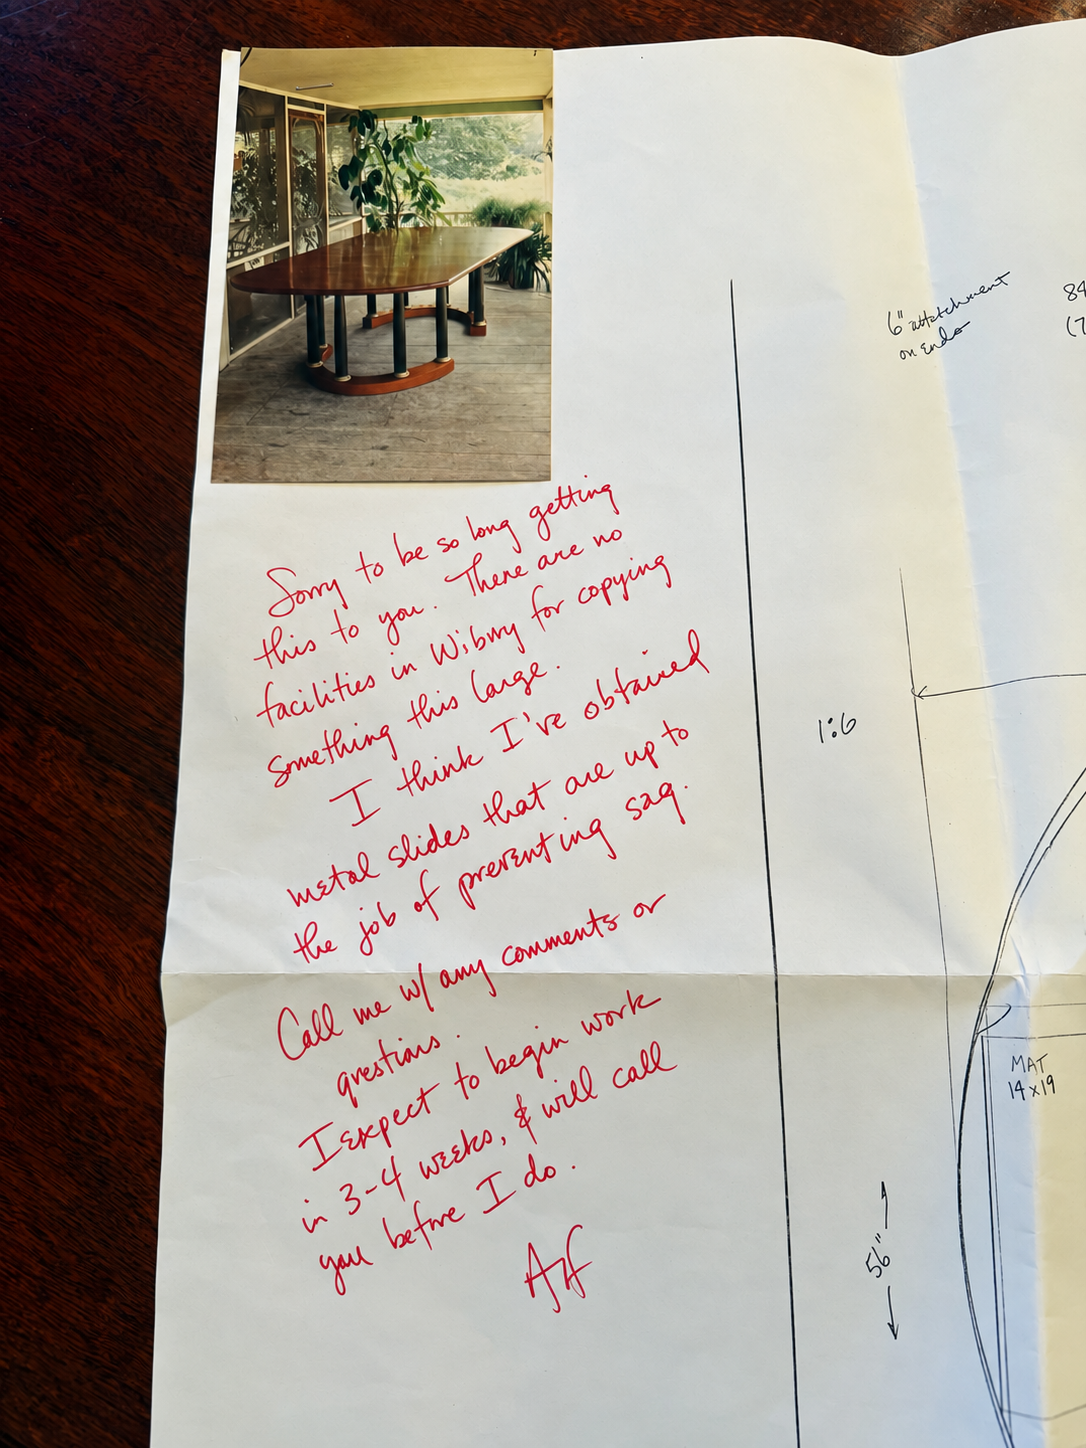 Sorry to be so long getting
this to you. There are no
facilities in Wibwy for copying
something this large.
I think I've obtained
metal slides that are up to
the job of preventing sag.
Call me w/ any comments or
questions.
I expect to begin work
in 3-4 weeks, & will call
you before I do.
6" attatchment
on ends
84
(7
1:6
MAT
14x19
56"